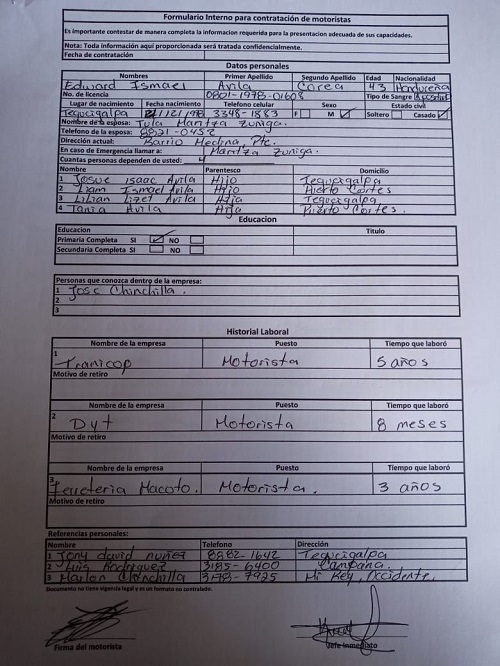 Formulario Interno para contratación de motoristas
Es importante contestar de manera completa la informacion requerida para la presentacion adecuada de sus capacidades.
Nota: Toda información aquí proporcionada será tratada confidencialmente.
Fecha de contratación
Datos personales
Nombres Primer Apellido Segundo Apellido Edad Nacionalidad
Edward Ismael Avila Corea 43 Hondureña
No. de licencia 0801-1978-01608 Tipo de Sangre
Lugar de nacimiento Fecha nacimiento Telefono celular Sexo Estado civil
Tegucigalpa 3348-1883 F M Soltero Casado
Nombre de la esposa: Tula Maritza Zuniga.
Telefono de la esposa: 8821-0452
Dirección actual: Barrio Medina, Ptc.
En caso de Emergencia llamar a: Maritza Zuniga.
Cuantas personas dependen de usted: 4
Nombre Parentesco Domicilio
1 Josue Isaac Avila Hijo Tegucigalpa
2 Liam Ismael Avila Hijo Puerto Cortes
3 Lilian Lizet Avila Hija Tegucigalpa
4 Tania Avila Hija Puerto Cortes.
Educacion
Educacion Titulo
Primaria Completa SI NO
Secundaria Completa SI NO
Personas que conozca dentro de la empresa:
1 Jose Chinchilla.
2
3
Historial Laboral
Nombre de la empresa Puesto Tiempo que laboró
1 Tranicop Motorista 5 años
Motivo de retiro
Nombre de la empresa Puesto Tiempo que laboró
2 Dyt Motorista 8 meses
Motivo de retiro
Nombre de la empresa Puesto Tiempo que laboró
3 Ferreteria Macoto. Motorista. 3 años
Motivo de retiro
Referencias personales:
Nombre Telefono Dirección
1 Tony david nuñez 8882-1642 Tegucigalpa
2 Luis Rodriguez 3185-6400 Campana.
3 Marlon Chinchilla 3178-7925 Mi Rey, Occidente.
Documento no tiene vigencia legal y es un formato no controlado.
Firma del motorista Jefe Inmediato